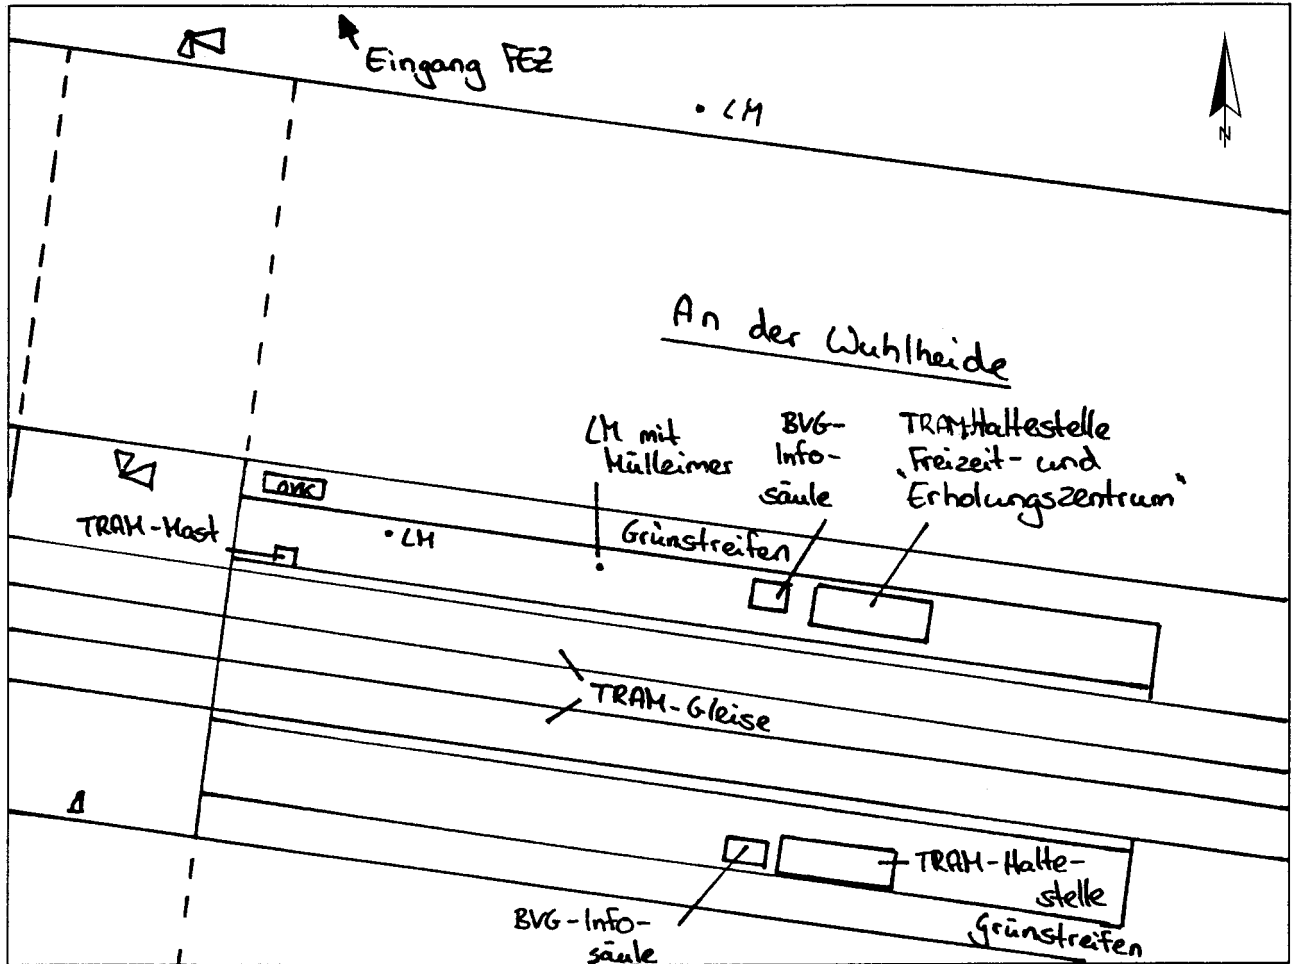 Eingang FEZ
LM
N
An der Wuhlheide
LM mit
Mülleimer
BVG-
Info-
säule
TRAM-Haltestelle
"Freizeit- und
Erholungszentrum"
TRAM-Mast
LM
Grünstreifen
TRAM-Gleise
TRAM-Halte-
stelle
BVG-Info-
säule
Grünstreifen